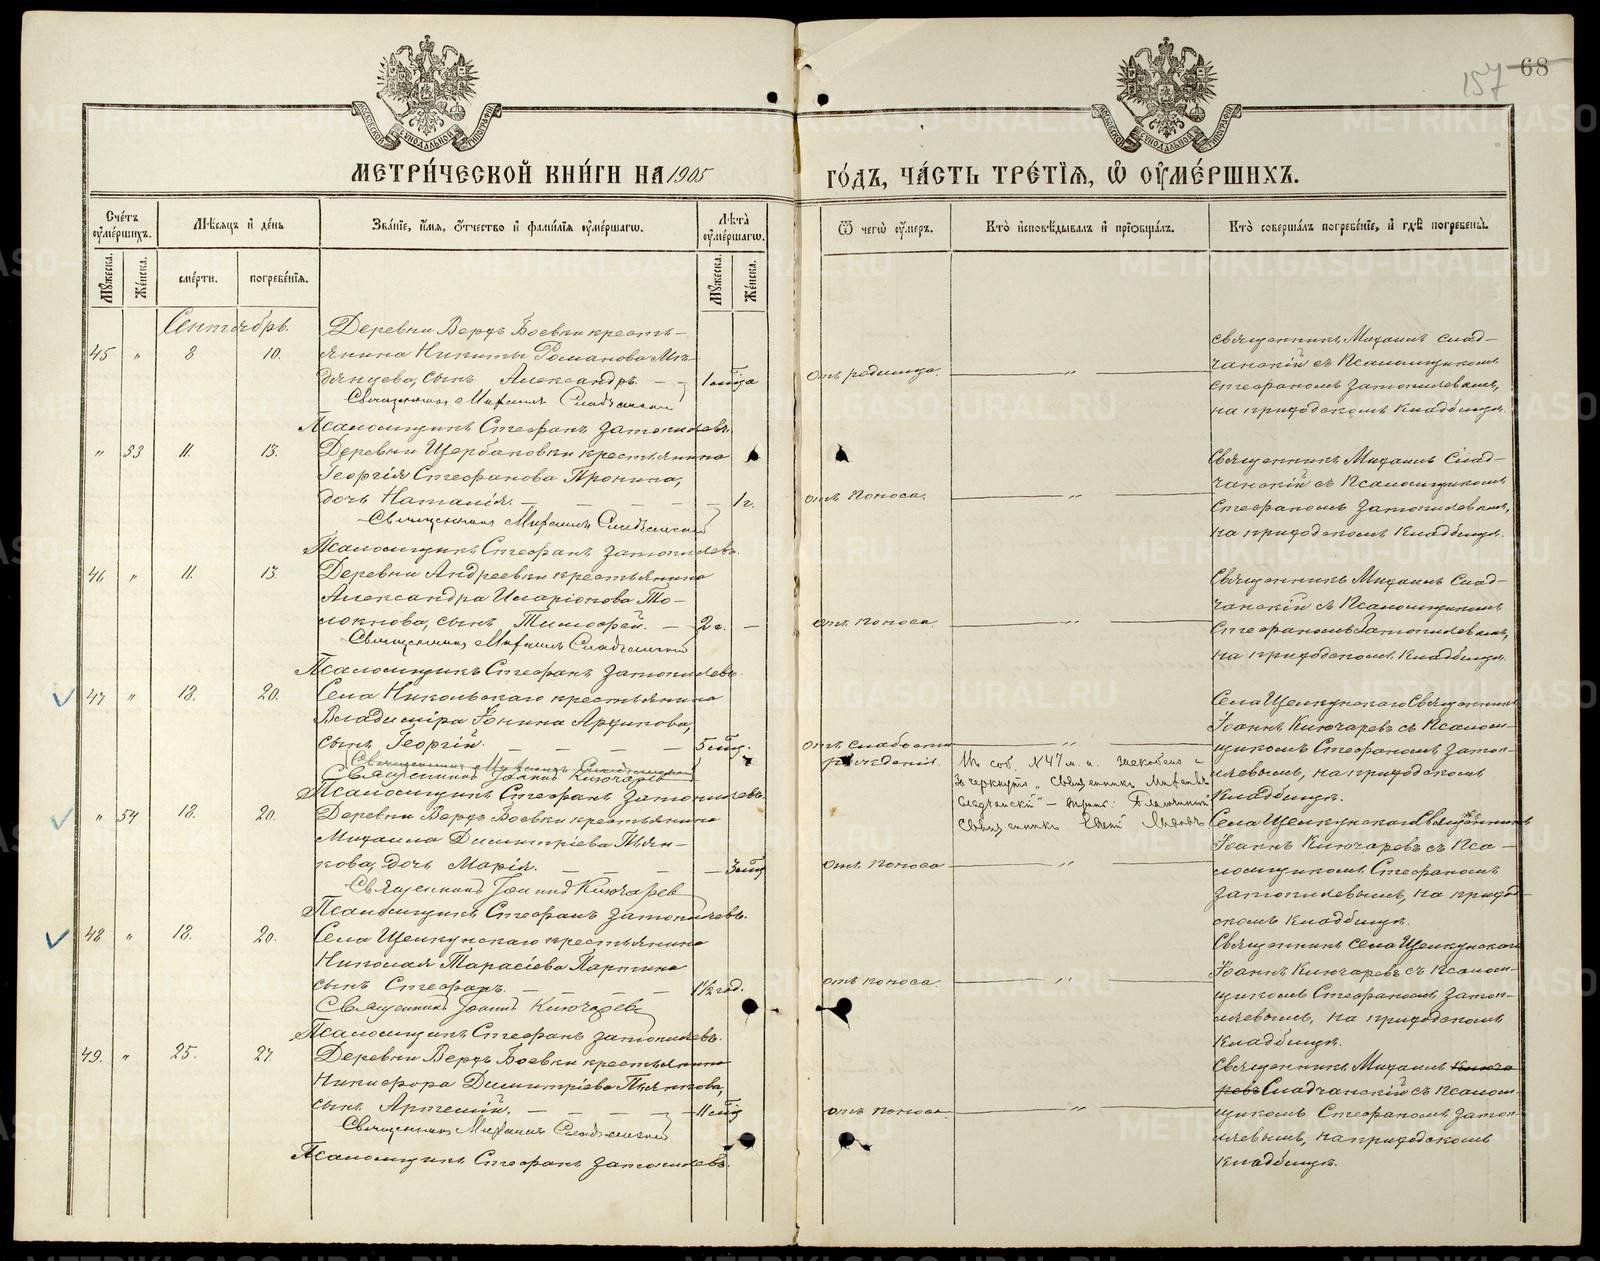 157 68
МЕТРИ́ЧЕСКОЙ КНИ́ГИ НА 1905 ГО́ДЪ, ЧА́СТЬ ТРЕ́ТІѦ, Ѡ ОУМЕ́РШИХЪ.
Сче́тъ оумѐршихъ.
Мꙋ́жеска.
Же́нска.
Мѣ́сяцъ и де́нь
сме́рти.
погребе́нїя.
Зва́нїе, и́мя, о́тчество и фами́лїя оуме́ршагѡ.
Лѣ́та оуме́ршагѡ.
Мꙋ́жеска.
Же́нска.
Ѿ чегѡ̀ оу́меръ.
Кто̀ исповѣ́дывалъ и прїѡбща́лъ.
Кто̀ соверша́лъ погребе́нїе, и гдѣ̀ погребены̀.
Сентябрь.
45 " 8 10.
Деревни Верхъ Боевки кресть-
янина Никиты Романова
сынъ Александръ. 1 мѣс
Священникъ Михаилъ
Псаломщикъ Стефанъ Затопляевъ.
отъ родимца. "
Священникъ Михаилъ
съ Псаломщикомъ
Стефаномъ Затопляевымъ,
на приходскомъ кладбищѣ.
" 53 11. 13.
Деревни Щербаковки крестьянина
Георгія Стефанова Пронина,
дочь Наталія. 1 г.
Священникъ Михаилъ
Псаломщикъ Стефанъ Затопляевъ.
отъ поноса. "
Священникъ Михаилъ
съ Псаломщикомъ
Стефаномъ Затопляевымъ,
на приходскомъ кладбищѣ.
46 " 11. 13.
Деревни Андреевки крестьянина
Александра Иларіонова То-
локнова, сынъ Тимофей. 2 г.
Священникъ Михаилъ
Псаломщикъ Стефанъ Затопляевъ.
отъ поноса. "
Священникъ Михаилъ
съ Псаломщикомъ
Стефаномъ Затопляевымъ,
на приходскомъ кладбищѣ.
47 " 18. 20.
Села Никольскаго крестьянина
Владиміра Іонина
сынъ Георгій. 5 мѣс.
Священникъ Михаилъ
Священникъ Іоаннъ Ключаревъ
Псаломщикъ Стефанъ Затопляевъ.
отъ слабости
рожденія. "
Въ соб. №47 м. п.
зачеркнуто „Священникъ Михаилъ
Священникъ
Села Щелкунскаго Священникъ
Іоаннъ Ключаревъ съ Псалом-
щикомъ Стефаномъ Затоп-
ляевымъ, на приходскомъ
кладбищѣ.
" 54 18. 20.
Деревни Верхъ Боевки крестьянина
Михаила Димитріева Пьян-
кова, дочь Марія. 3 мѣс
Священникъ Іоаннъ Ключаревъ
Псаломщикъ Стефанъ Затопляевъ.
отъ поноса "
Села Щелкунскаго Священникъ
Іоаннъ Ключаревъ съ Пса-
ломщикомъ Стефаномъ
Затопляевымъ, на приход-
скомъ кладбищѣ.
48 " 18. 20.
Села Щелкунскаго крестьянина
Николая Тарасіева Партина
сынъ Стефанъ. 1½ год.
Священникъ Іоаннъ Ключаревъ
Псаломщикъ Стефанъ Затопляевъ.
отъ поноса. "
Священникъ села Щелкунскаго
Іоаннъ Ключаревъ съ Псалом-
щикомъ Стефаномъ Затоп-
ляевымъ, на приходскомъ
кладбищѣ.
49. " 25. 27
Деревни Верхъ Боевки крестьянина
Никифора Димитріева Пьянкова,
сынъ Артемій. 11 мѣс
Священникъ Михаилъ
Псаломщикъ Стефанъ Затопляевъ.
отъ поноса. "
Священникъ Михаилъ Ключа
ревъ съ Псалом-
щикомъ Стефаномъ Затоп-
ляевымъ, на приходскомъ
кладбищѣ.
METRIKI.GASO-URAL.RU